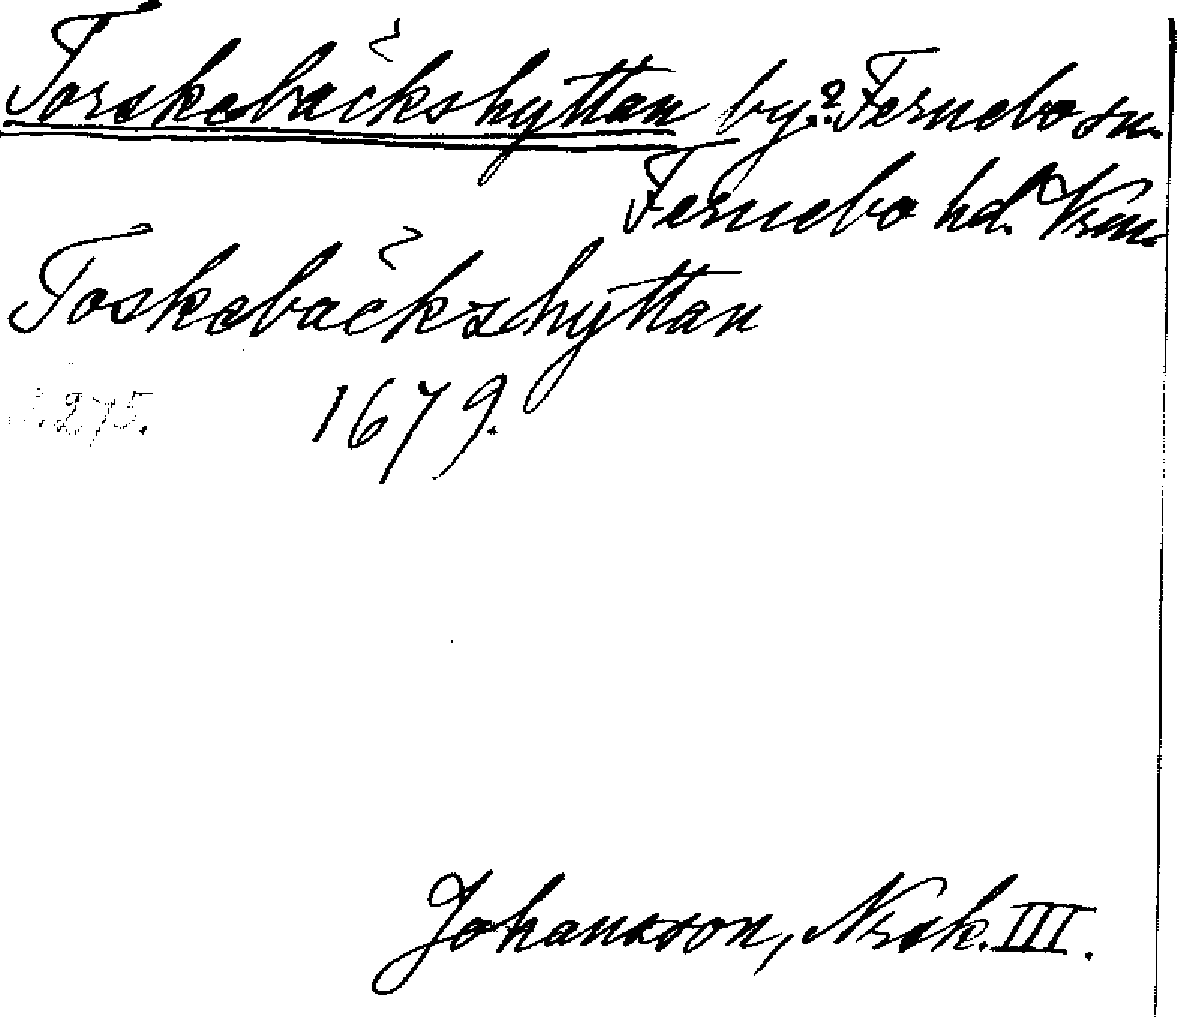 Torskebäckshyttan by.? Fernebo sn.
Fernebo hd. Vrm.
Toskebäckzhyttan
s. 275. 1679.
Johansson, Nrsk. III.